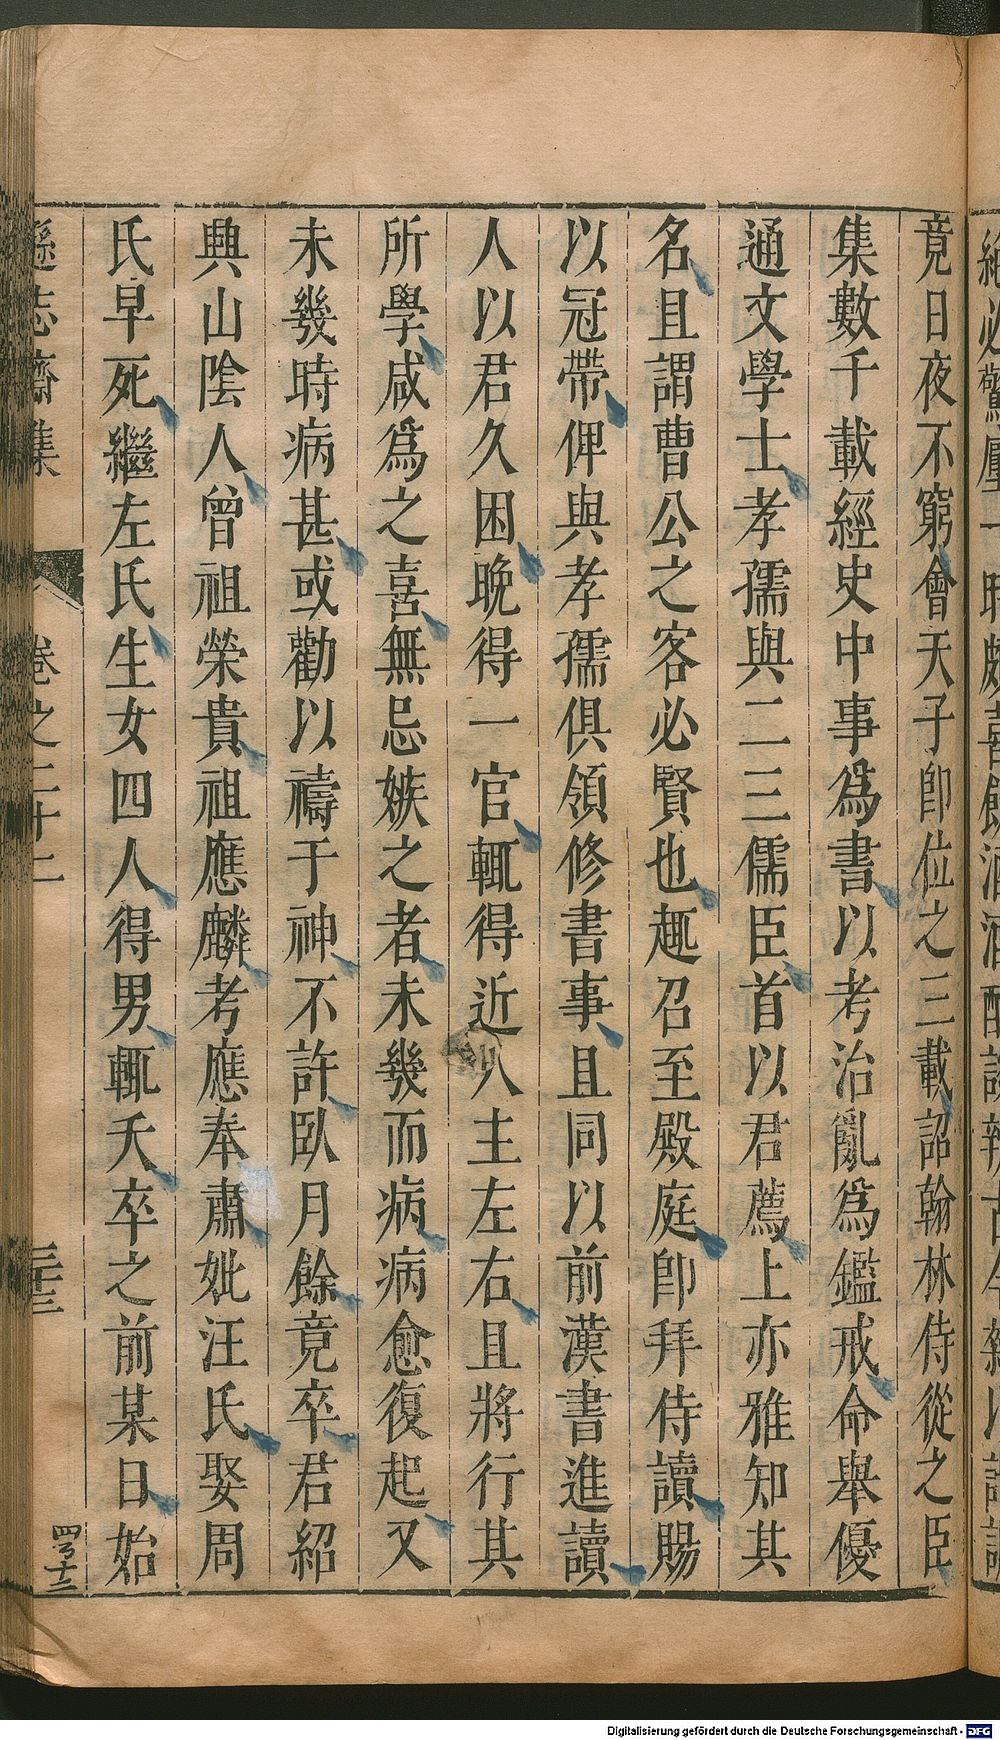 竟日夜不窮會天子卽位之三載詔翰林侍從之臣
集數千載經史中事爲書以考治亂爲鑑戒命舉優
通文學士孝孺與二三儒臣首以君薦上亦雅知其
名且謂曹公之客必賢也趣召至殿庭卽拜侍讀賜
以冠帶俾與孝孺俱領修書事且同以前漢書進讀
人以君久困晚得一官輒得近人主左右且將行其
所學咸爲之喜無忌嫉之者未幾而病病愈復起又
未幾時病甚或勸以禱于神不許臥月餘竟卒君紹
興山陰人曾祖榮貴祖應麟考應奉肅妣汪氏娶周
氏早死繼左氏生女四人得男輒夭卒之前某日始
遜志齋集
卷之二十二
三十三
Digitalisierung gefördert durch die Deutsche Forschungsgemeinschaft - DFG